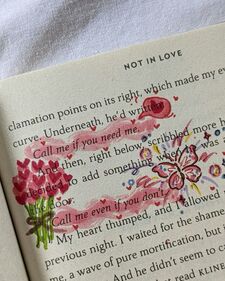 NOT IN LOVE
clamation points on its right, which made my eye
curve. Underneath, he'd written
Call me if you need me.
And then, right below, scribbled more h
decided to add something when was
oor:
Call me even if you don't.
My heart thumped, and I allowed
previous night. I waited for the shame
me, a wave of pure mortification, but
And he didn't seem to c
st read KLINE